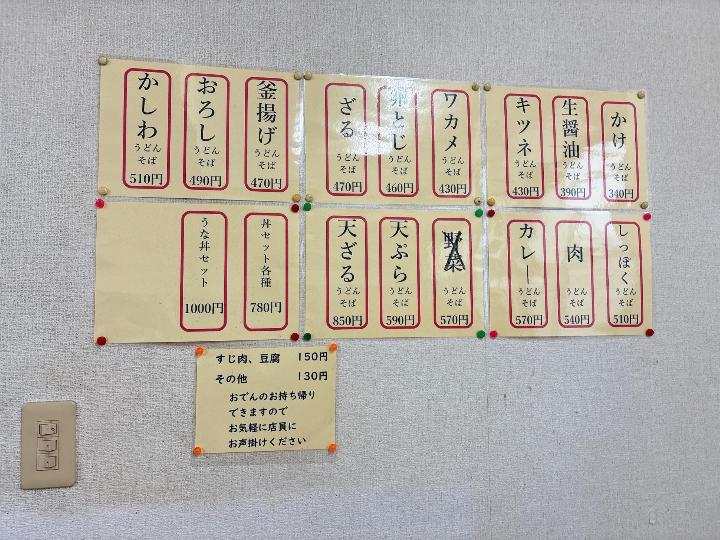 かけ
うどん
そば
340円
生醤油
うどん
そば
390円
キツネ
うどん
そば
430円
ワカメ
うどん
そば
430円
卵とじ
うどん
そば
460円
ざる
うどん
そば
470円
釜揚げ
うどん
そば
470円
おろし
うどん
そば
490円
かしわ
うどん
そば
510円
しっぽく
うどん
そば
510円
肉
うどん
そば
540円
カレー
うどん
そば
570円
野菜
うどん
そば
570円
天ぷら
うどん
そば
590円
天ざる
うどん
そば
850円
丼セット各種
780円
うな丼セット
1000円
すじ肉、豆腐 150円
その他 130円
おでんのお持ち帰り
できますので
お気軽に店員に
お声掛けください